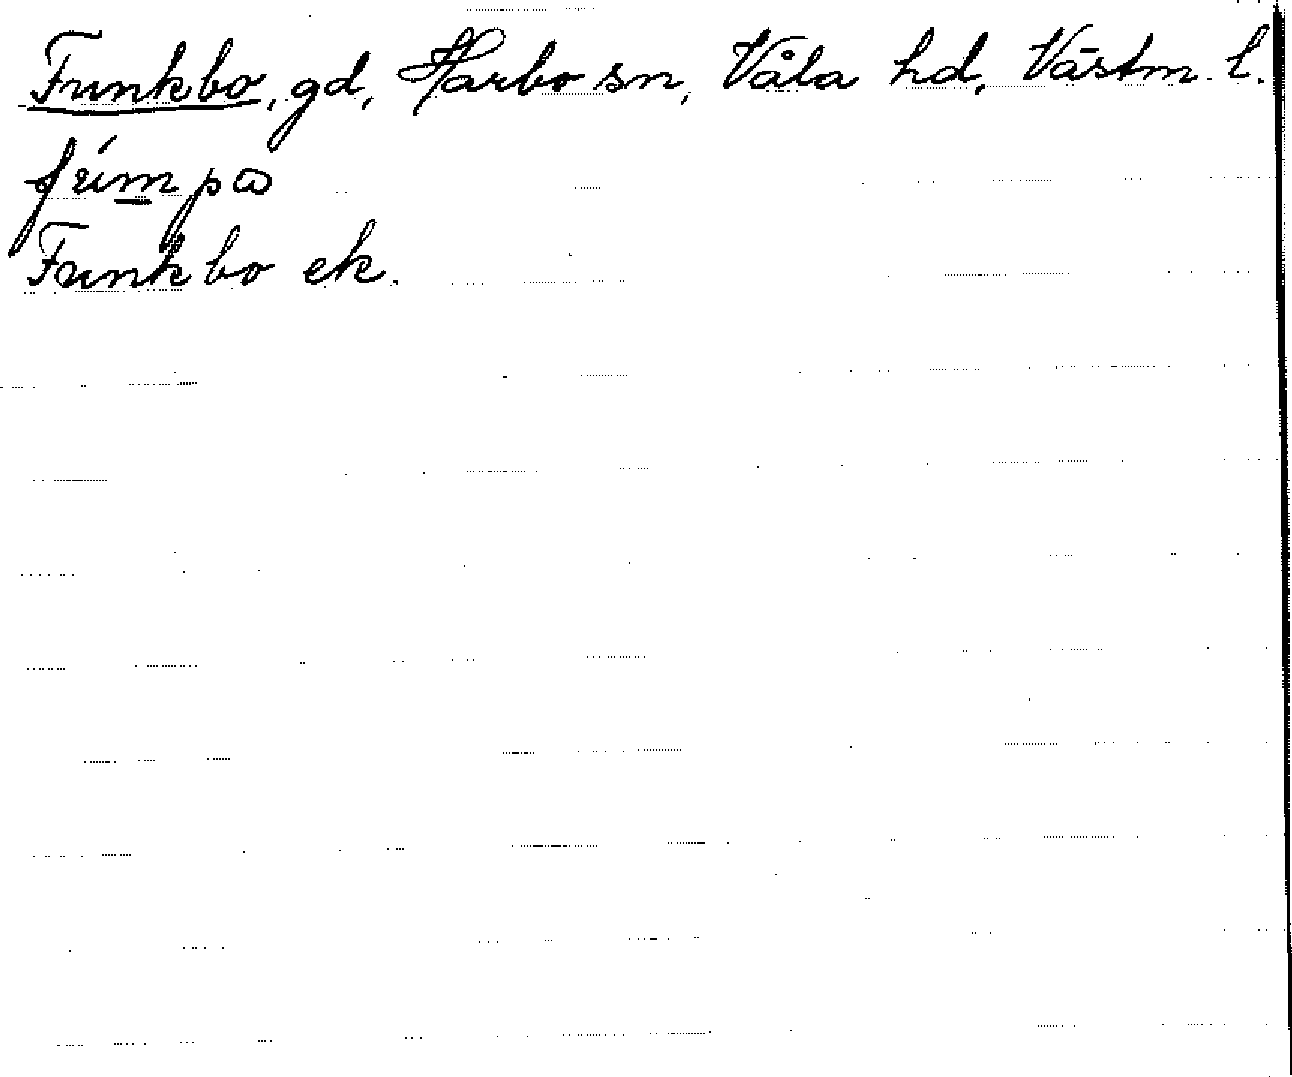 Funkbo, gd, Harbo sn, Våla hd, Västm. l.
Funkbo ek.